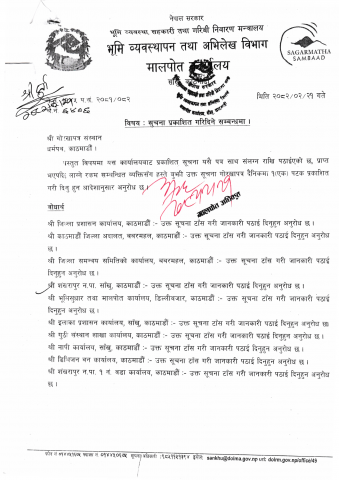 नेपाल सरकार
भूमि व्यवस्था, सहकारी तथा गरिबी निवारण मन्त्रालय
भूमि व्यवस्थापन तथा अभिलेख विभाग
मालपोत कार्यालय
SAGARMATHA
SAMBAAD
प.व. २०८१/०८२
मिति २०८२/०२/२९ गते
विषय : सूचना प्रकाशित गरिदिने सम्बन्धमा ।
श्री गोरखापत्र संस्थान
धर्मपथ, काठमाडौं ।
प्रस्तुत विषयमा यस कार्यालयबाट प्रकाशित सूचना यसै पत्र साथ संलग्न राखि पठाईएको छ, प्राप्त
भएपछि लाग्ने रकम सम्बन्धित व्यक्तिसँग हस्ते चुक्ती उक्त सूचना गोरखापत्र दैनिकमा १(एक) पटक प्रकाशित
गरी दिनु हुन आदेशानुसार अनुरोध छ ।
बोधार्थ
श्री जिल्ला प्रशासन कार्यालय, काठमाडौं :- उक्त सूचना टाँस गरी जानकारी पठाई दिनुहुन अनुरोध छ ।
श्री काठमाडौं जिल्ला अदालत, बबरमहल, काठमाडौं :- उक्त सूचना टाँस गरी जानकारी पठाई दिनुहुन
अनुरोध छ ।
श्री जिल्ला समन्वय समितिको कार्यालय, बबरमहल, काठमाडौं :- उक्त सूचना टाँस गरी जानकारी पठाई
दिनुहुन अनुरोध छ ।
श्री शंखरापुर न.पा. साँखु, काठमाडौं :- उक्त सूचना टाँस गरी जानकारी पठाई दिनुहुन अनुरोध छ ।
श्री भूमिसुधार तथा मालपोत कार्यालय, डिल्लीबजार, काठमाडौं :- उक्त सूचना टाँस गरी जानकारी पठाई
दिनुहुन अनुरोध छ ।
श्री इलाका प्रशासन कार्यालय, साँखु, काठमाडौं :- उक्त सूचना टाँस गरी जानकारी पठाई दिनुहुन अनुरोध छ।
श्री गुठी संस्थान शाखा कार्यालय, काठमाडौं :- उक्त सूचना टाँस गरी जानकारी पठाई दिनुहुन अनुरोध छ ।
श्री नापी कार्यालय, साँखु, काठमाडौं :- उक्त सूचना टाँस गरी जानकारी पठाई दिनुहुन अनुरोध छ ।
श्री डिभिजन वन कार्यालय, काठमाडौं :- उक्त सूचना टाँस गरी जानकारी पठाई दिनुहुन अनुरोध छ ।
श्री शंखरापुर न.पा. १ नं. वडा कार्यालय, काठमाडौं :- उक्त सूचना टाँस गरी जानकारी पठाई दिनुहुन अनुरोध
छ ।
मालपोत अधिकृत
sankhu@dolma.gov.np url: dolrm.gov.np/office/45